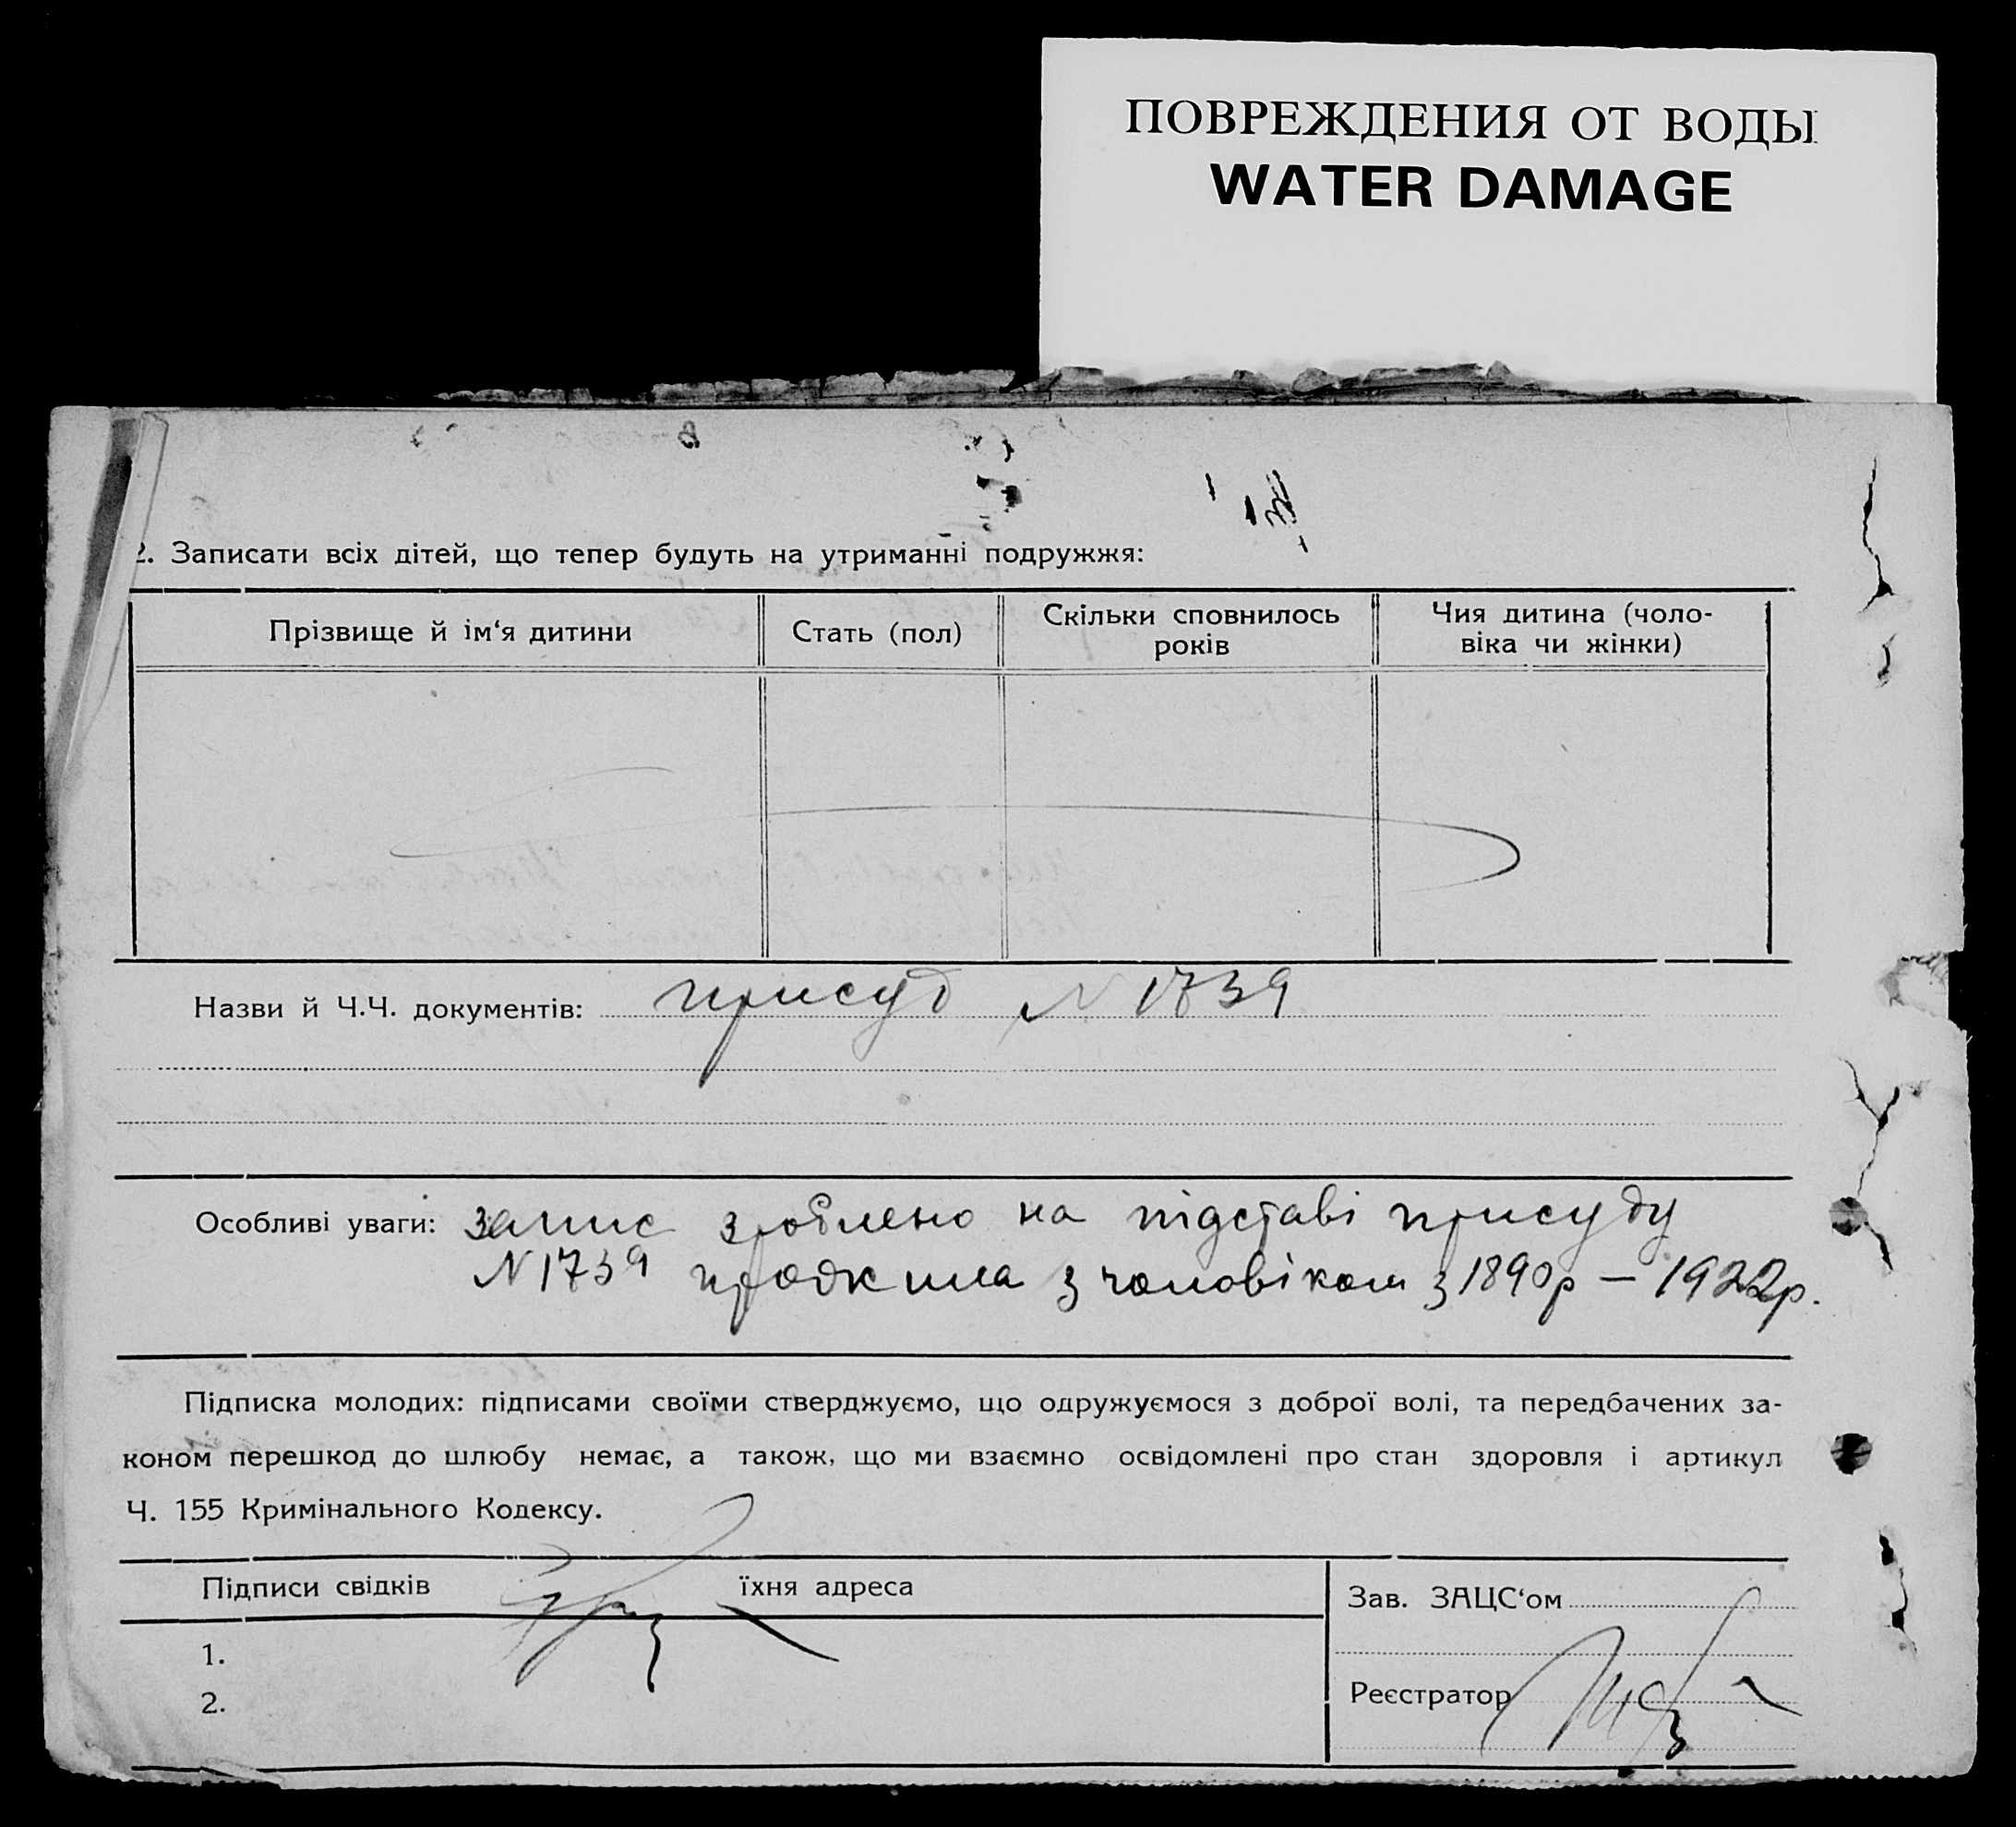 ПОВРЕЖДЕНИЯ ОТ ВОДЫ
WATER DAMAGE
2. Записати всіх дітей, що тепер будуть на утриманні подружжя:
Прізвище й ім‘я дитини
Стать (пол)
Скільки сповнилось
років
Чия дитина (чоло-
віка чи жінки)
Назви й Ч.Ч. документів: присуд N 1739
Особливі уваги: запис зроблено на підставі присуду
N 1739 прожила з чоловіком з 1890р — 1922р.
Підписка молодих: підписами своїми стверджуємо, що одружуємося з доброї волі, та передбачених за-
коном перешкод до шлюбу немає, а також, що ми взаємно освідомлені про стан здоровля і артикул
Ч. 155 Кримінального Кодексу.
Підписи свідків їхня адреса
1.
2.
Зав. ЗАЦС‘ом
Реєстратор